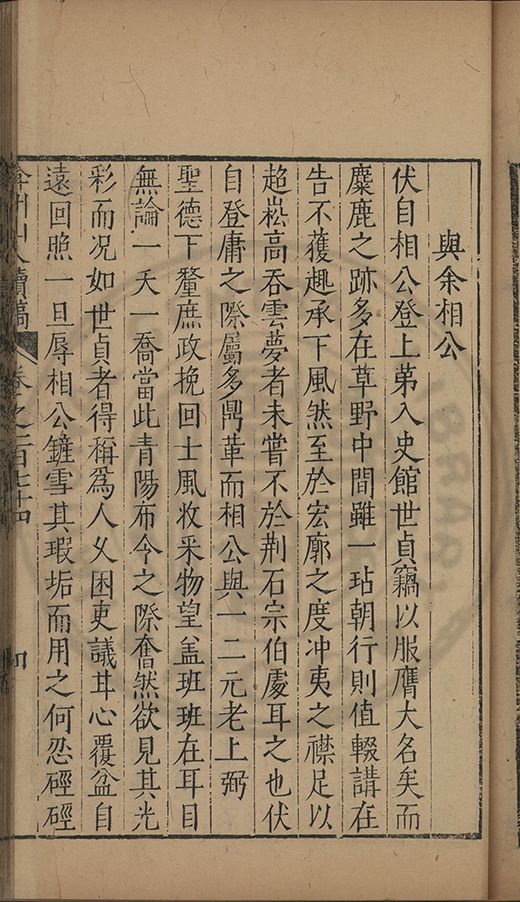 與余相公
伏自相公登上苐入史館世貞竊以服膺大名矣而
麋鹿之跡多在草野中間雖一玷朝行則值輟講在
告不獲趨承下風然至於宏廓之度冲夷之襟足以
趋崧高吞雲夢者未嘗不於荆石宗伯處耳之也伏
自登庸之際屬多鼎革而相公與一二元老上弼
聖德下釐庶政挽回士風收采物望盖班班在耳目
無論一夭一喬當此青陽布令之際奮然欲見其光
彩而况如世貞者得稱爲人乂困吏議耳心覆盆自
遠回照一旦辱相公鏟雪其瑕垢而用之何忍硜硜
弇州山人續稿 卷之一百七十四